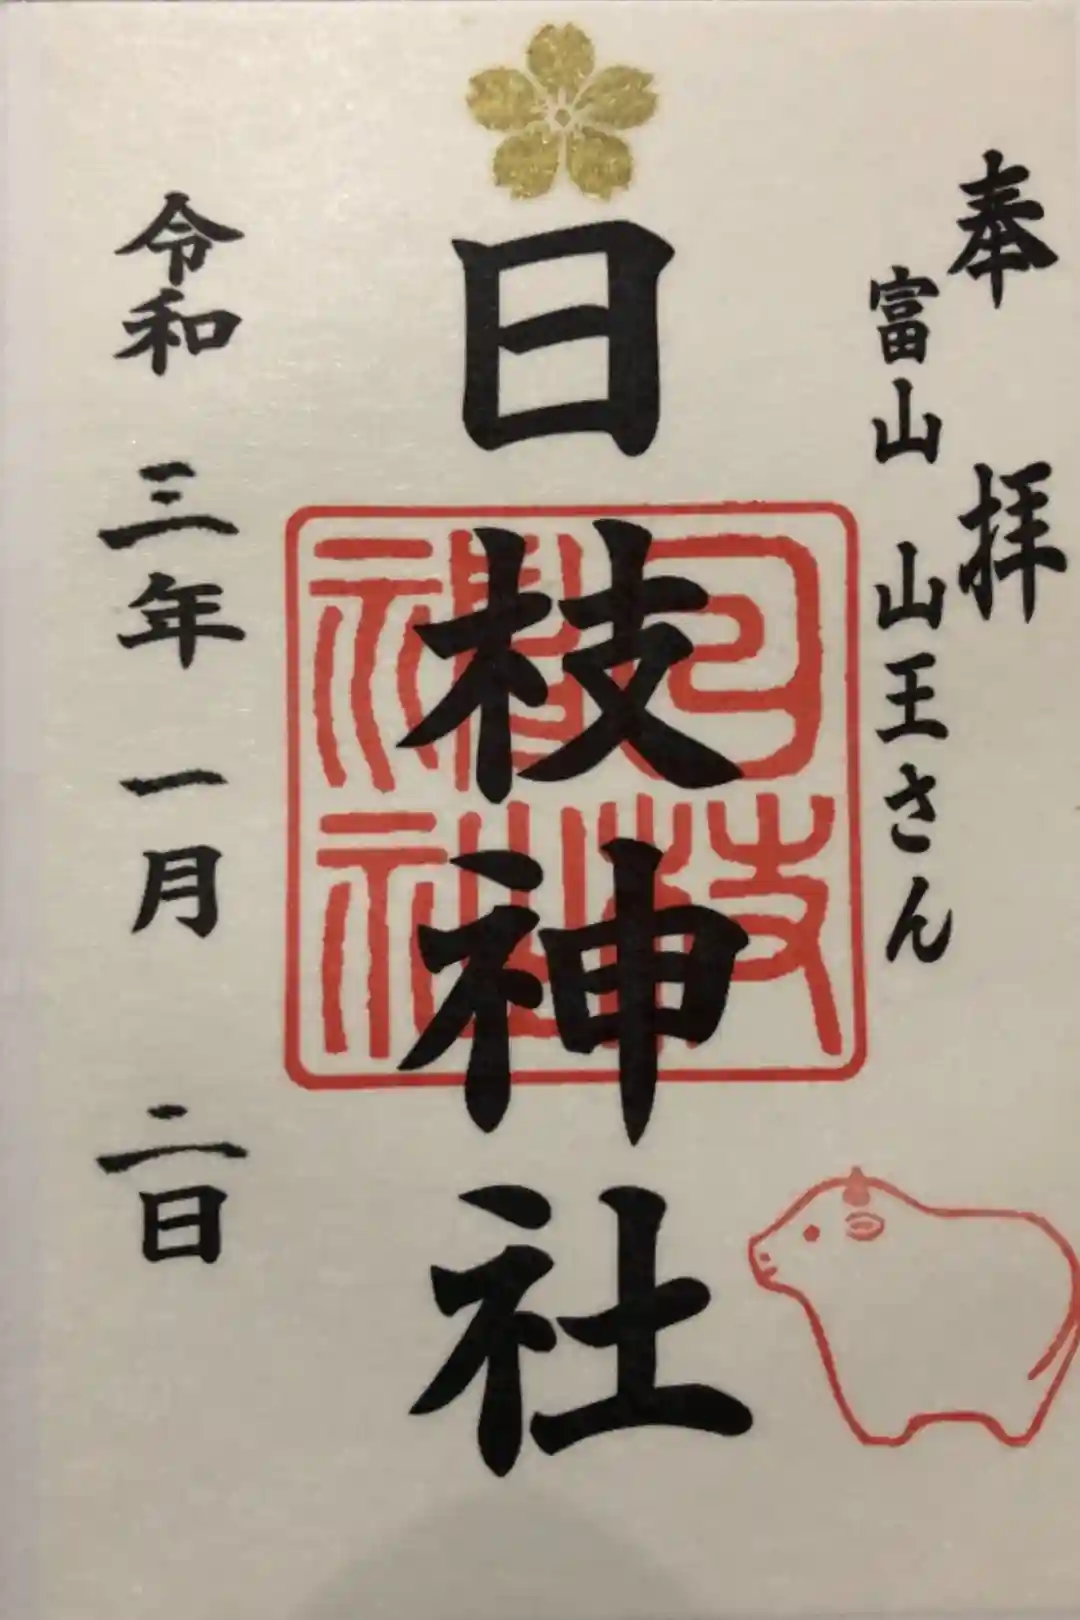 奉拝
富山 山王さん
日枝神社
日枝神社
令和三年一月二日